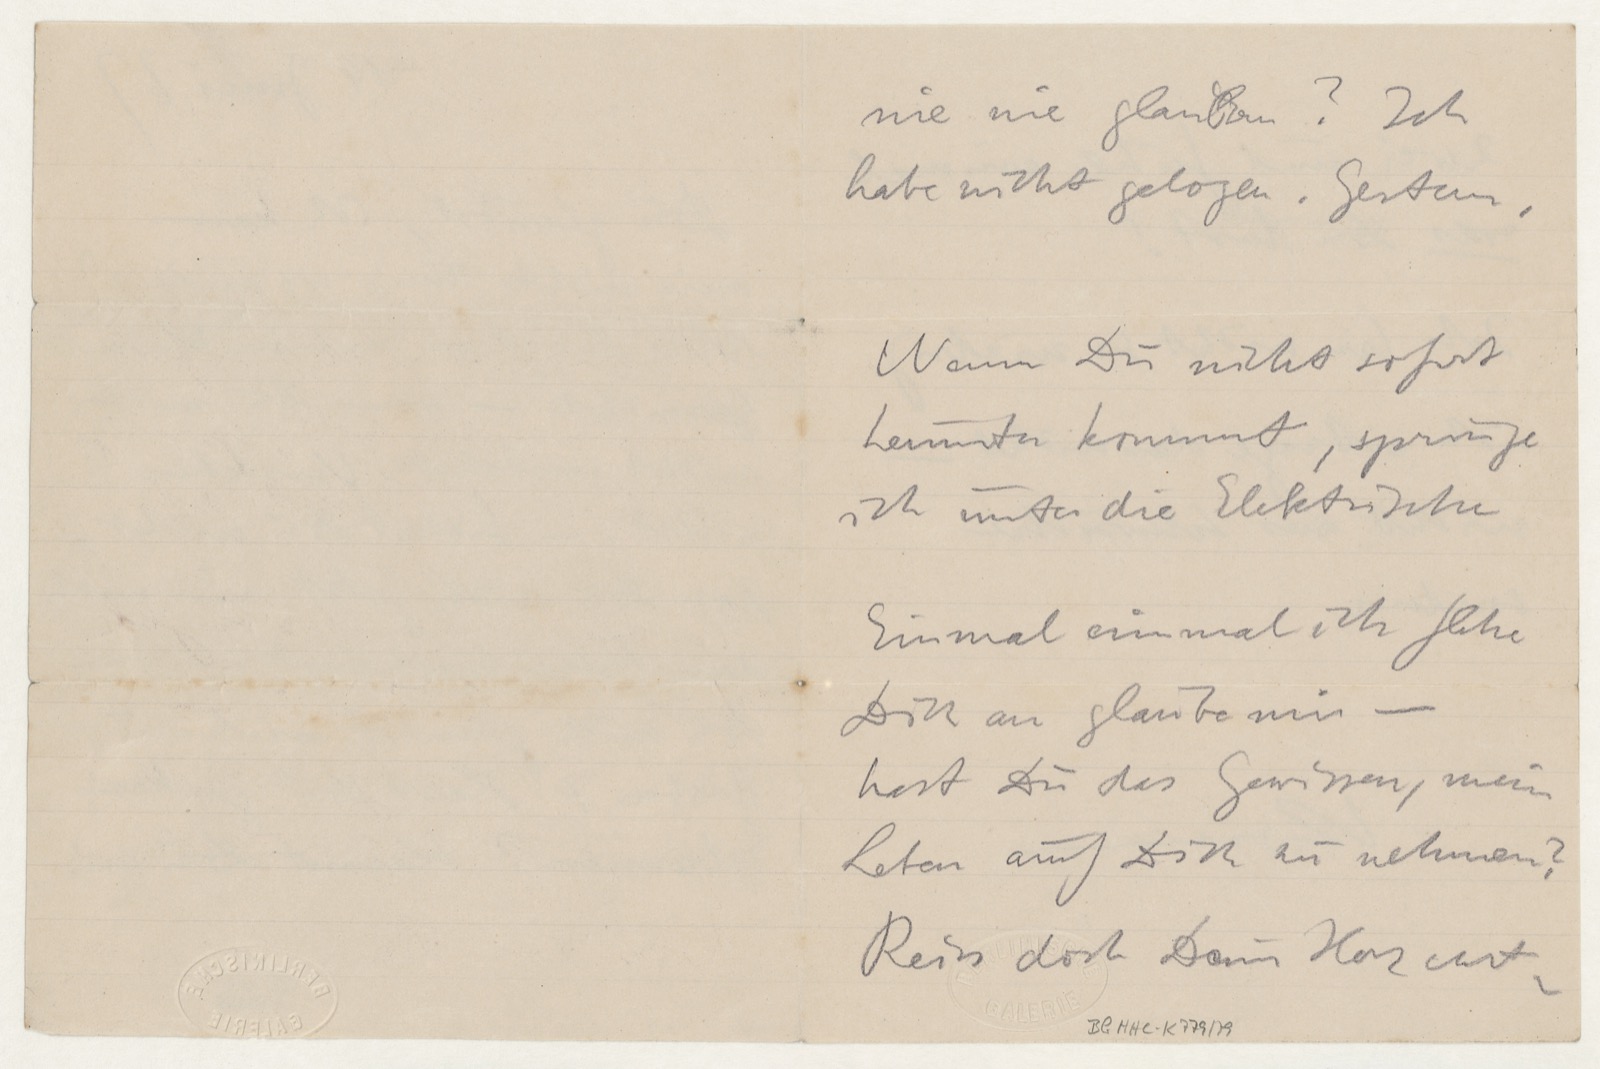 nie nie glauben? Ich
habe nicht gelogen. Gestern.
Wenn Du nicht sofort
herunter kommst, springe
ich unter die Elektrische
Einmal einmal ich flehe
Dich an glaube mir —
hast Du das Gewissen, mein
Leben auf Dich zu nehmen?
Reiss doch Dein Herz
BERLINISCHE GALERIE
BERLINISCHE GALERIE
BG-HHC-K779/79